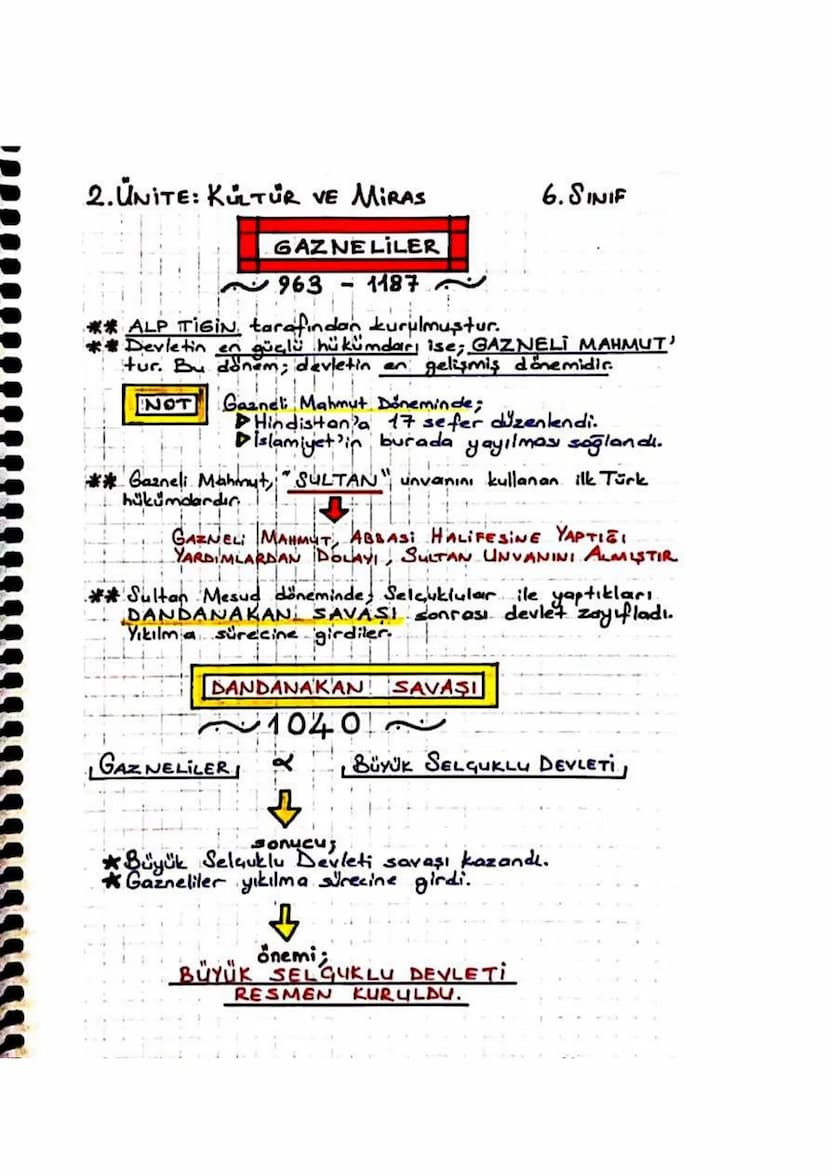 2.ÜNİTE: KÜLTÜR VE MİRAS 6. SINIF
GAZNELİLER
963 - 1187
** ALP TİGİN tarafından kurulmuştur.
** Devletin en güçlü hükümdarı ise; GAZNELİ MAHMUT'
tur. Bu dönem; devletin en gelişmiş dönemidir.
NOT Gazneli Mahmut Döneminde;
▷Hindistan'a 17 sefer düzenlendi.
▷İslamiyet'in burada yayılması sağlandı.
** Gazneli Mahmut, "SULTAN" unvanını kullanan ilk Türk
hükümdardır.
GAZNELİ MAHMUT, ABBASİ HALİFESİNE YAPTIĞI
YARDIMLARDAN DOLAYI, SULTAN UNVANINI ALMIŞTIR
** Sultan Mesud döneminde; Selçuklular ile yaptıkları
DANDANAKAN SAVAŞI sonrası devlet zayıfladı.
Yıkılma sürecine girdiler.
DANDANAKAN SAVAŞI
1040
GAZNELİLER X BÜYÜK SELÇUKLU DEVLETİ
sonucu;
★Büyük Selçuklu Devleti savaşı kazandı.
★Gazneliler yıkılma sürecine girdi.
önemi;
BÜYÜK SELÇUKLU DEVLETİ
RESMEN KURULDU.